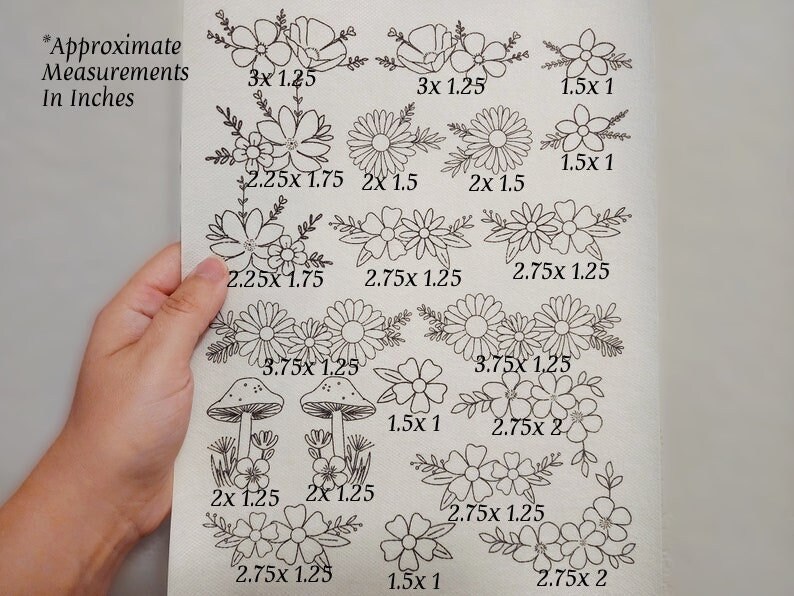 *Approximate
Measurements
In Inches
3x 1.25
3x 1.25
1.5x 1
1.5x 1
2.25x 1.75
2x 1.5
2x 1.5
2.25x 1.75
2.75x 1.25
2.75x 1.25
3.75x 1.25
3.75x 1.25
1.5x 1
2.75x 2
2x 1.25
2x 1.25
2.75x 1.25
2.75x 1.25
1.5x 1
2.75x 2